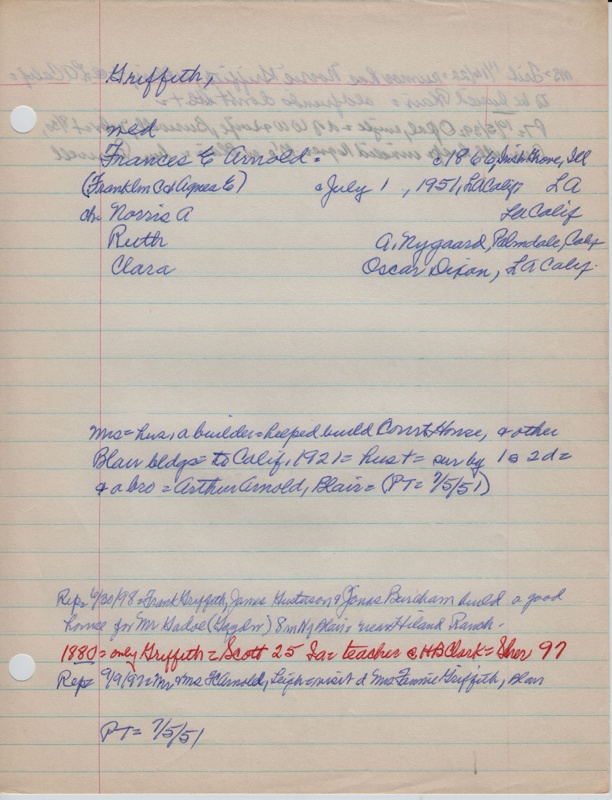 Griffith,
med
Frances E Arnold = c1866, Irish Grove, Ill
(Franklin C & Agnes E) c July 1, 1951, LACalif LA
ch. Norris A LaCalif
Ruth A. Nygaard, Palmdale, Calif
Clara Oscar Dixon, LA Calif.
Mrs = hus, a builder = helped build Court House, & other
Blair bldgs = to Calif, 1921 = hus + = sur by 1s 2d =
& a bro = Arthur Arnold, Blair = (PT = 7/5/51)
Rep = 6/30/98 = Frank Griffith, James Gustason & Jonas Burcham build a good
house for Mr Gadoe (Gaydou) 8 m N of Blair = near Hiland Ranch.
1880 = only Griffith = Scott 25 Ia = teacher @ HB Clark = Sher 97
Rep = 9/9/97 = Mr & Ms FC Arnold, Leigh = visit d Mrs Fannie Griffith, Blair
PT = 7/5/51